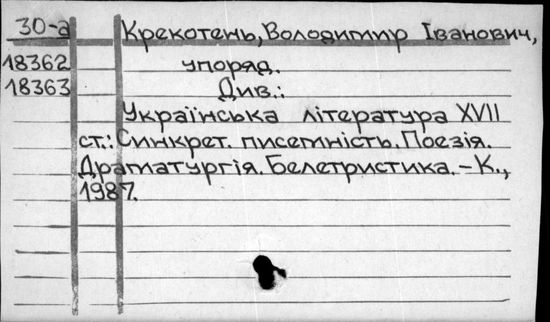 30-а Крекотень, Володимир Іванович,
18362 упоряд.
18363 Див.:
Українська література XVII
ст.: Синкрет. писемність. Поезія.
Драматургія. Белетристика. – К.,
1987.